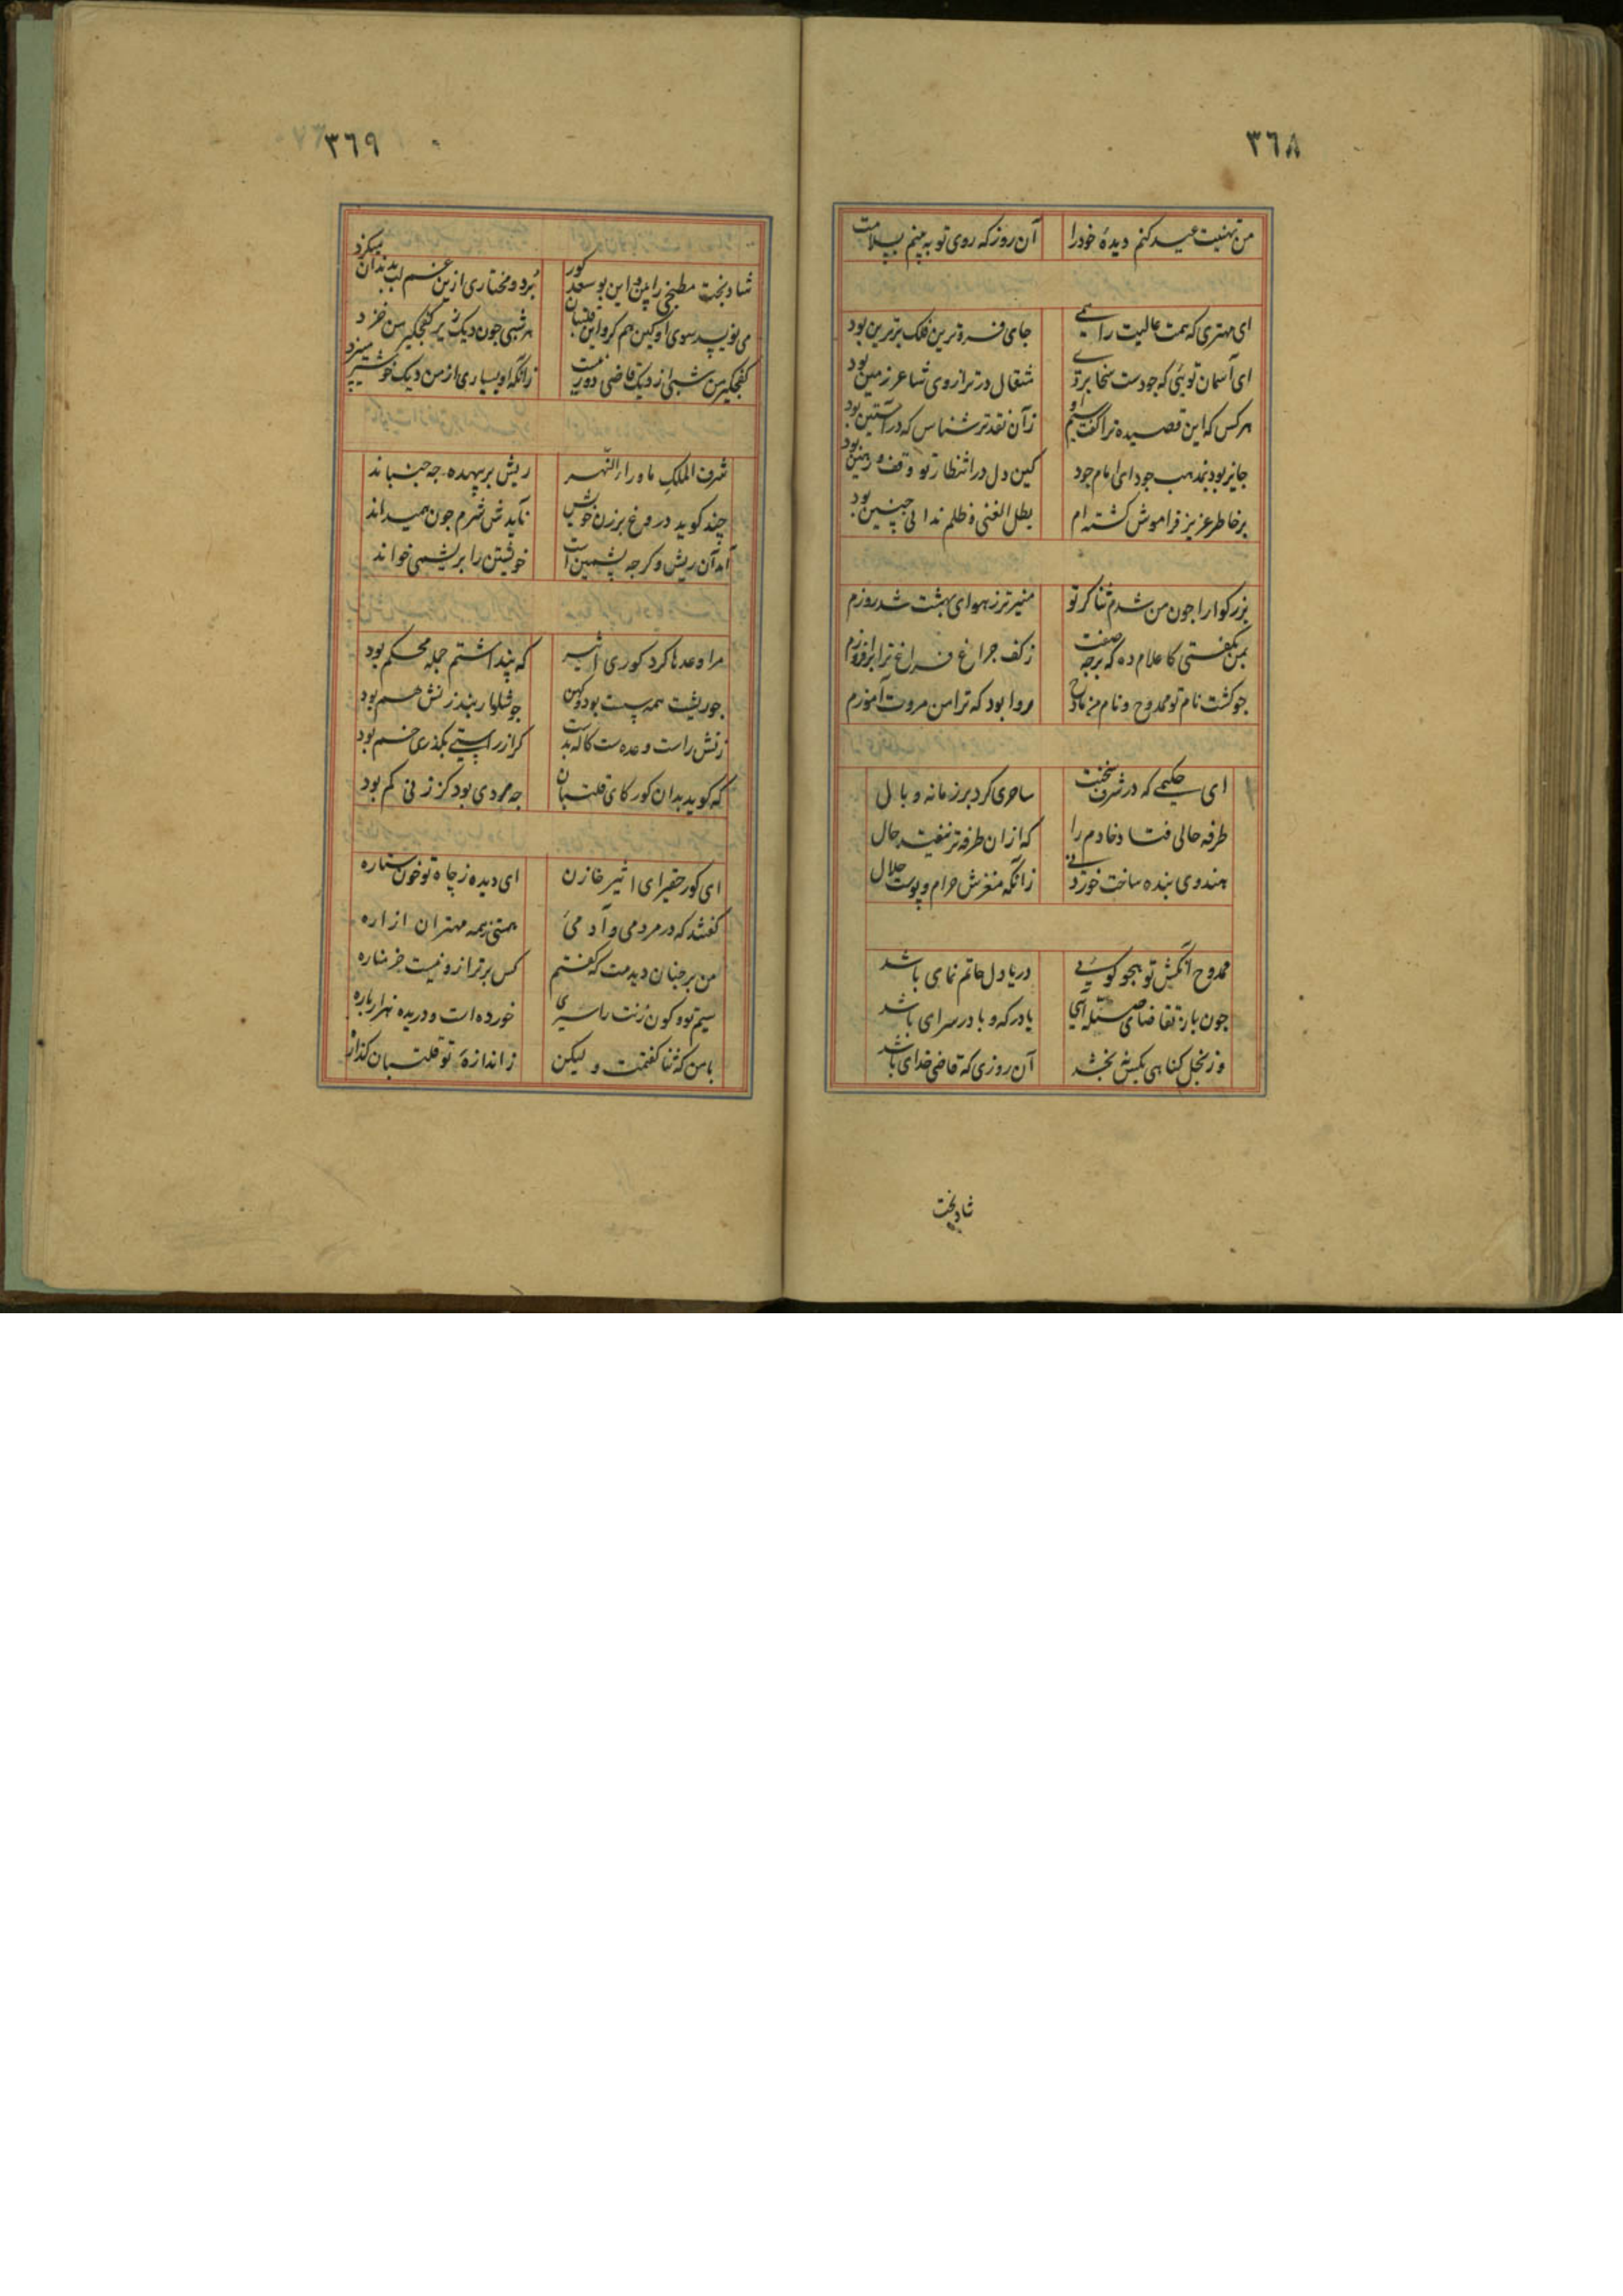 ٣٦٨
من تهنیت عید کنم دیدهٔ خودرا آن روز که روی تو به بینم بسلامت
ای مهتری که همت عالیت را همی جای فروترین فلک برترین بود
ای آسمان توئی که جودست سخا بری مثقال در ترازوی شاعر زمین بود
هرکس که این قصیده ترا گفت سیم او زآن نقدتر شناس که در آستین بود
جایز بود بمذهب جود ای امام جود کین دل در انتظار تو وقف
برخاطر عزیز فراموش گشته ام بطل الغنی و ظلم ندانی چنین بود
بزرکوارا جون من شدم ثنا کر تو منیرتر زهوای بهشت شد روزم
بمن نکفتی کاعلام ده که برجه صفت زکف جراغ فراغ ترا برافروزم
جو کشت نام تو ممدوح و نام من مادح روا بود که ترا من مروت آموزم
ای حکیمی که در شرف سخنت ساحری کرد بر زمانه وبال
طرفه حالی فتاد خادم را که ازان طرفه تر نیفتد حال
هندوی بنده ساخت خوردنی زانکه مغزش حرام و پوست حلال
ممدوح آنکش تو بهجو کوئی دریا دل حاتم نمای باشد
جون باز تقاضای صله آئی با درکه و با در سرای باشد
وز بخل کناهی بکس نبخشد آن روزی که قاضی خدای باشد
شادبخت
٣٦٩
شادبخت مطبخی را بین و این بوسعد کور برد و مختاری ازین غم لب بدندان میکزد
می نویسد سوی او کین هم کرو این قلتبان هر شبی جون دیک زیر کفجکیر من خزد
کفجکیر من شبی از دیک قاضی دور نیست زانکه او بسیاری از من دیک خوشتر میپزد
شرف الملک ماوراء النهر ریش بر بیهده جه جنباند
چند کوید دروغ بر زن خویش نآیدش شرم جون همیداند
آمد آن ریش و کرجه پشمین است خویشتن را بریشمی خواند
مرا وعدها کرد کوری اثیر که پنداشتم جمله محکم بود
جو ریشت همه پست بود و کهن جو شلوار بند زنش هم بود
زنش راست وعده ست کاله بدست کر از راستی بکذری خم بود
که کوید بدان کور کای قلتبان جه مردی بود کز زنی کم بود
ای کور حقیر ای اثیر خازن ای دیده ز چاه تو خون ستاره
کفتند که در مردمی و آدمی هستی ز همه مهتران
من بر جنان دیدمت که کفتم کس برتر ازو نیست جز مناره
سیم تو و کون زنت راسیری خورده است و دریده هزار باره
با من که ثنا کفتمت ولیکن ز اندازهٔ تو قلتبان